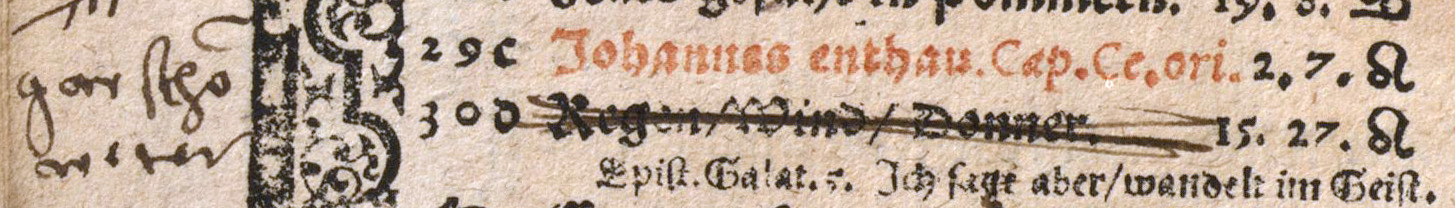 gar schō
weter
29 c Johannes enthau. Cap. Ce. ori. 2. 7. ♌
30 d Regen/Wind/Donner. 15. 27. ♌
Epist. Galat. 5. Ich sage aber/wandelt im Geist.